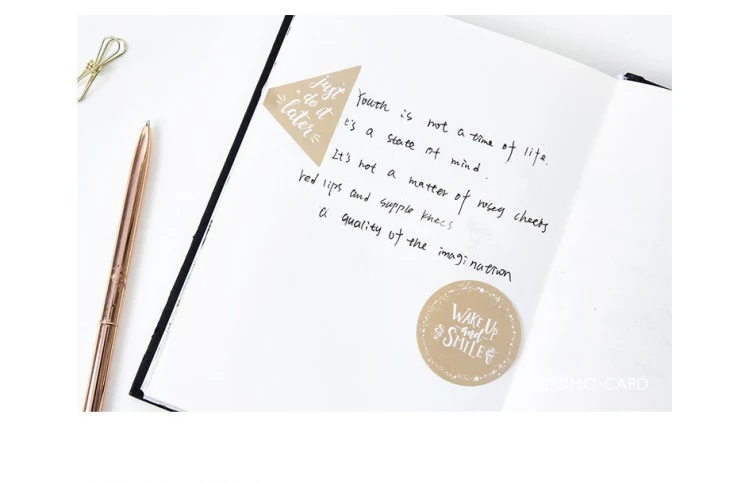 just
do it
later
Youth is not a time of life.
t's a state of mind.
It's not a matter of rosey cheeks
red lips and supple knees
a quality of the imagination
WAKE UP
and
SMILE
CARD